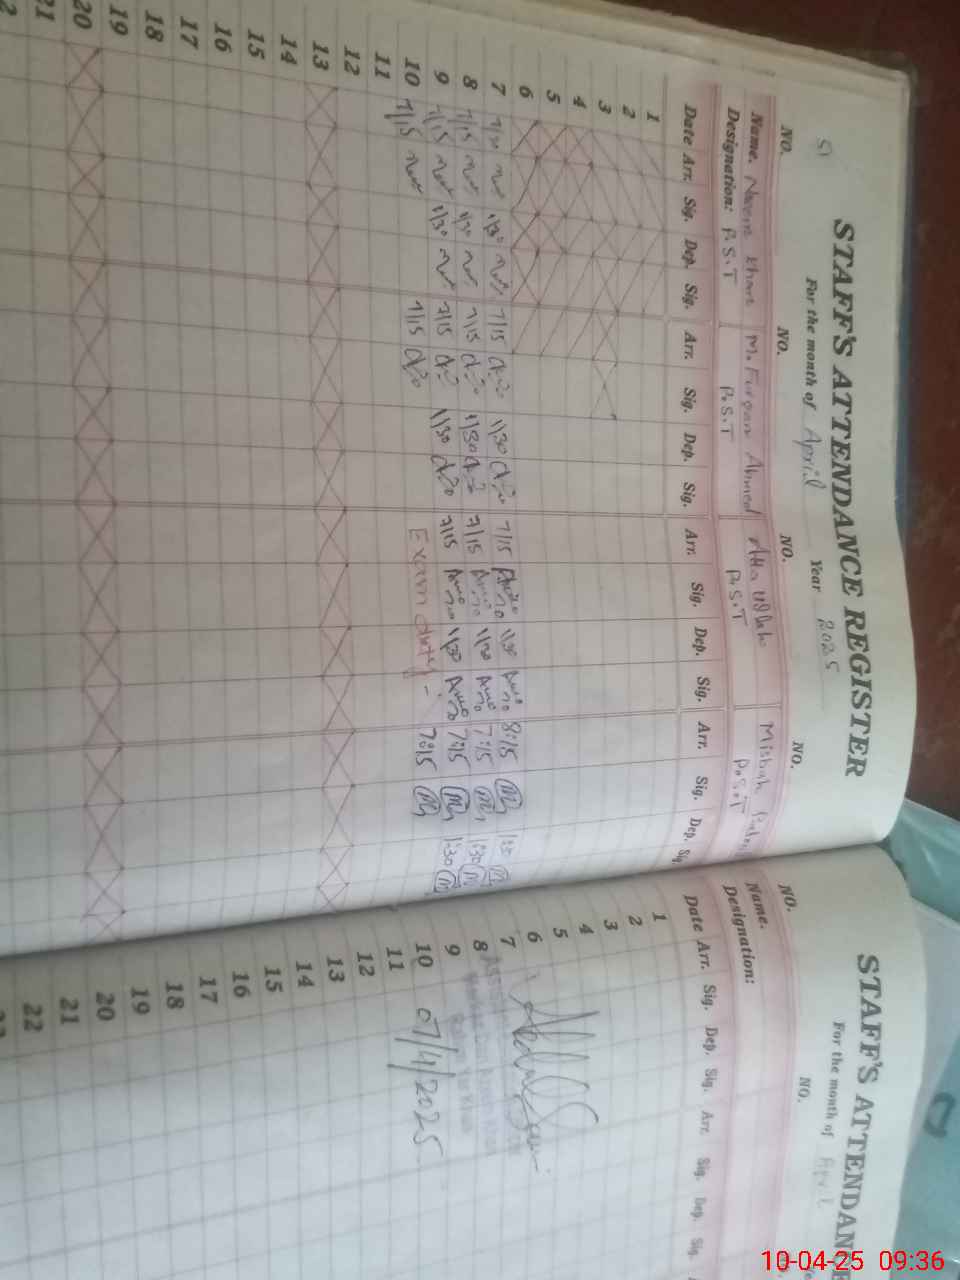 51
STAFF'S ATTENDANCE REGISTER
For the month of April Year 2025
NO. NO. NO. NO.
Name. Naeem Khan M. Furqan Ahmed Atta Ullah Misbah
Designation: P.S.T P.S.T P.S.T P.S.T
Date Arr. Sig. Dep. Sig. Arr. Sig. Dep. Sig. Arr. Sig. Dep. Sig. Arr. Sig. Dep. Sig.
1
2
3
4
5
6
7 7/30 1/30 7/15 1/30 7/15 1/30 8:15 1:30
8 7/15 1/30 7/15 1/30 7/15 1/30 7:15 1:30
9 7/15 1/30 7/15 1/30 7/15 1/30 7:15 1:30
10 7/15 7/15 Exam duty 7:15
11
12
13
14
15
16
17
18
19
20
21
STAFF'S ATTENDANCE
For the month of April
NO. NO.
Name.
Designation:
Date Arr. Sig. Dep. Sig. Arr. Sig. Dep. Sig.
1
2
3
4
5
6
7
8
9
10 07/4/2025
11
12
13
14
15
16
17
18
19
20
21
22
10-04-25 09:36